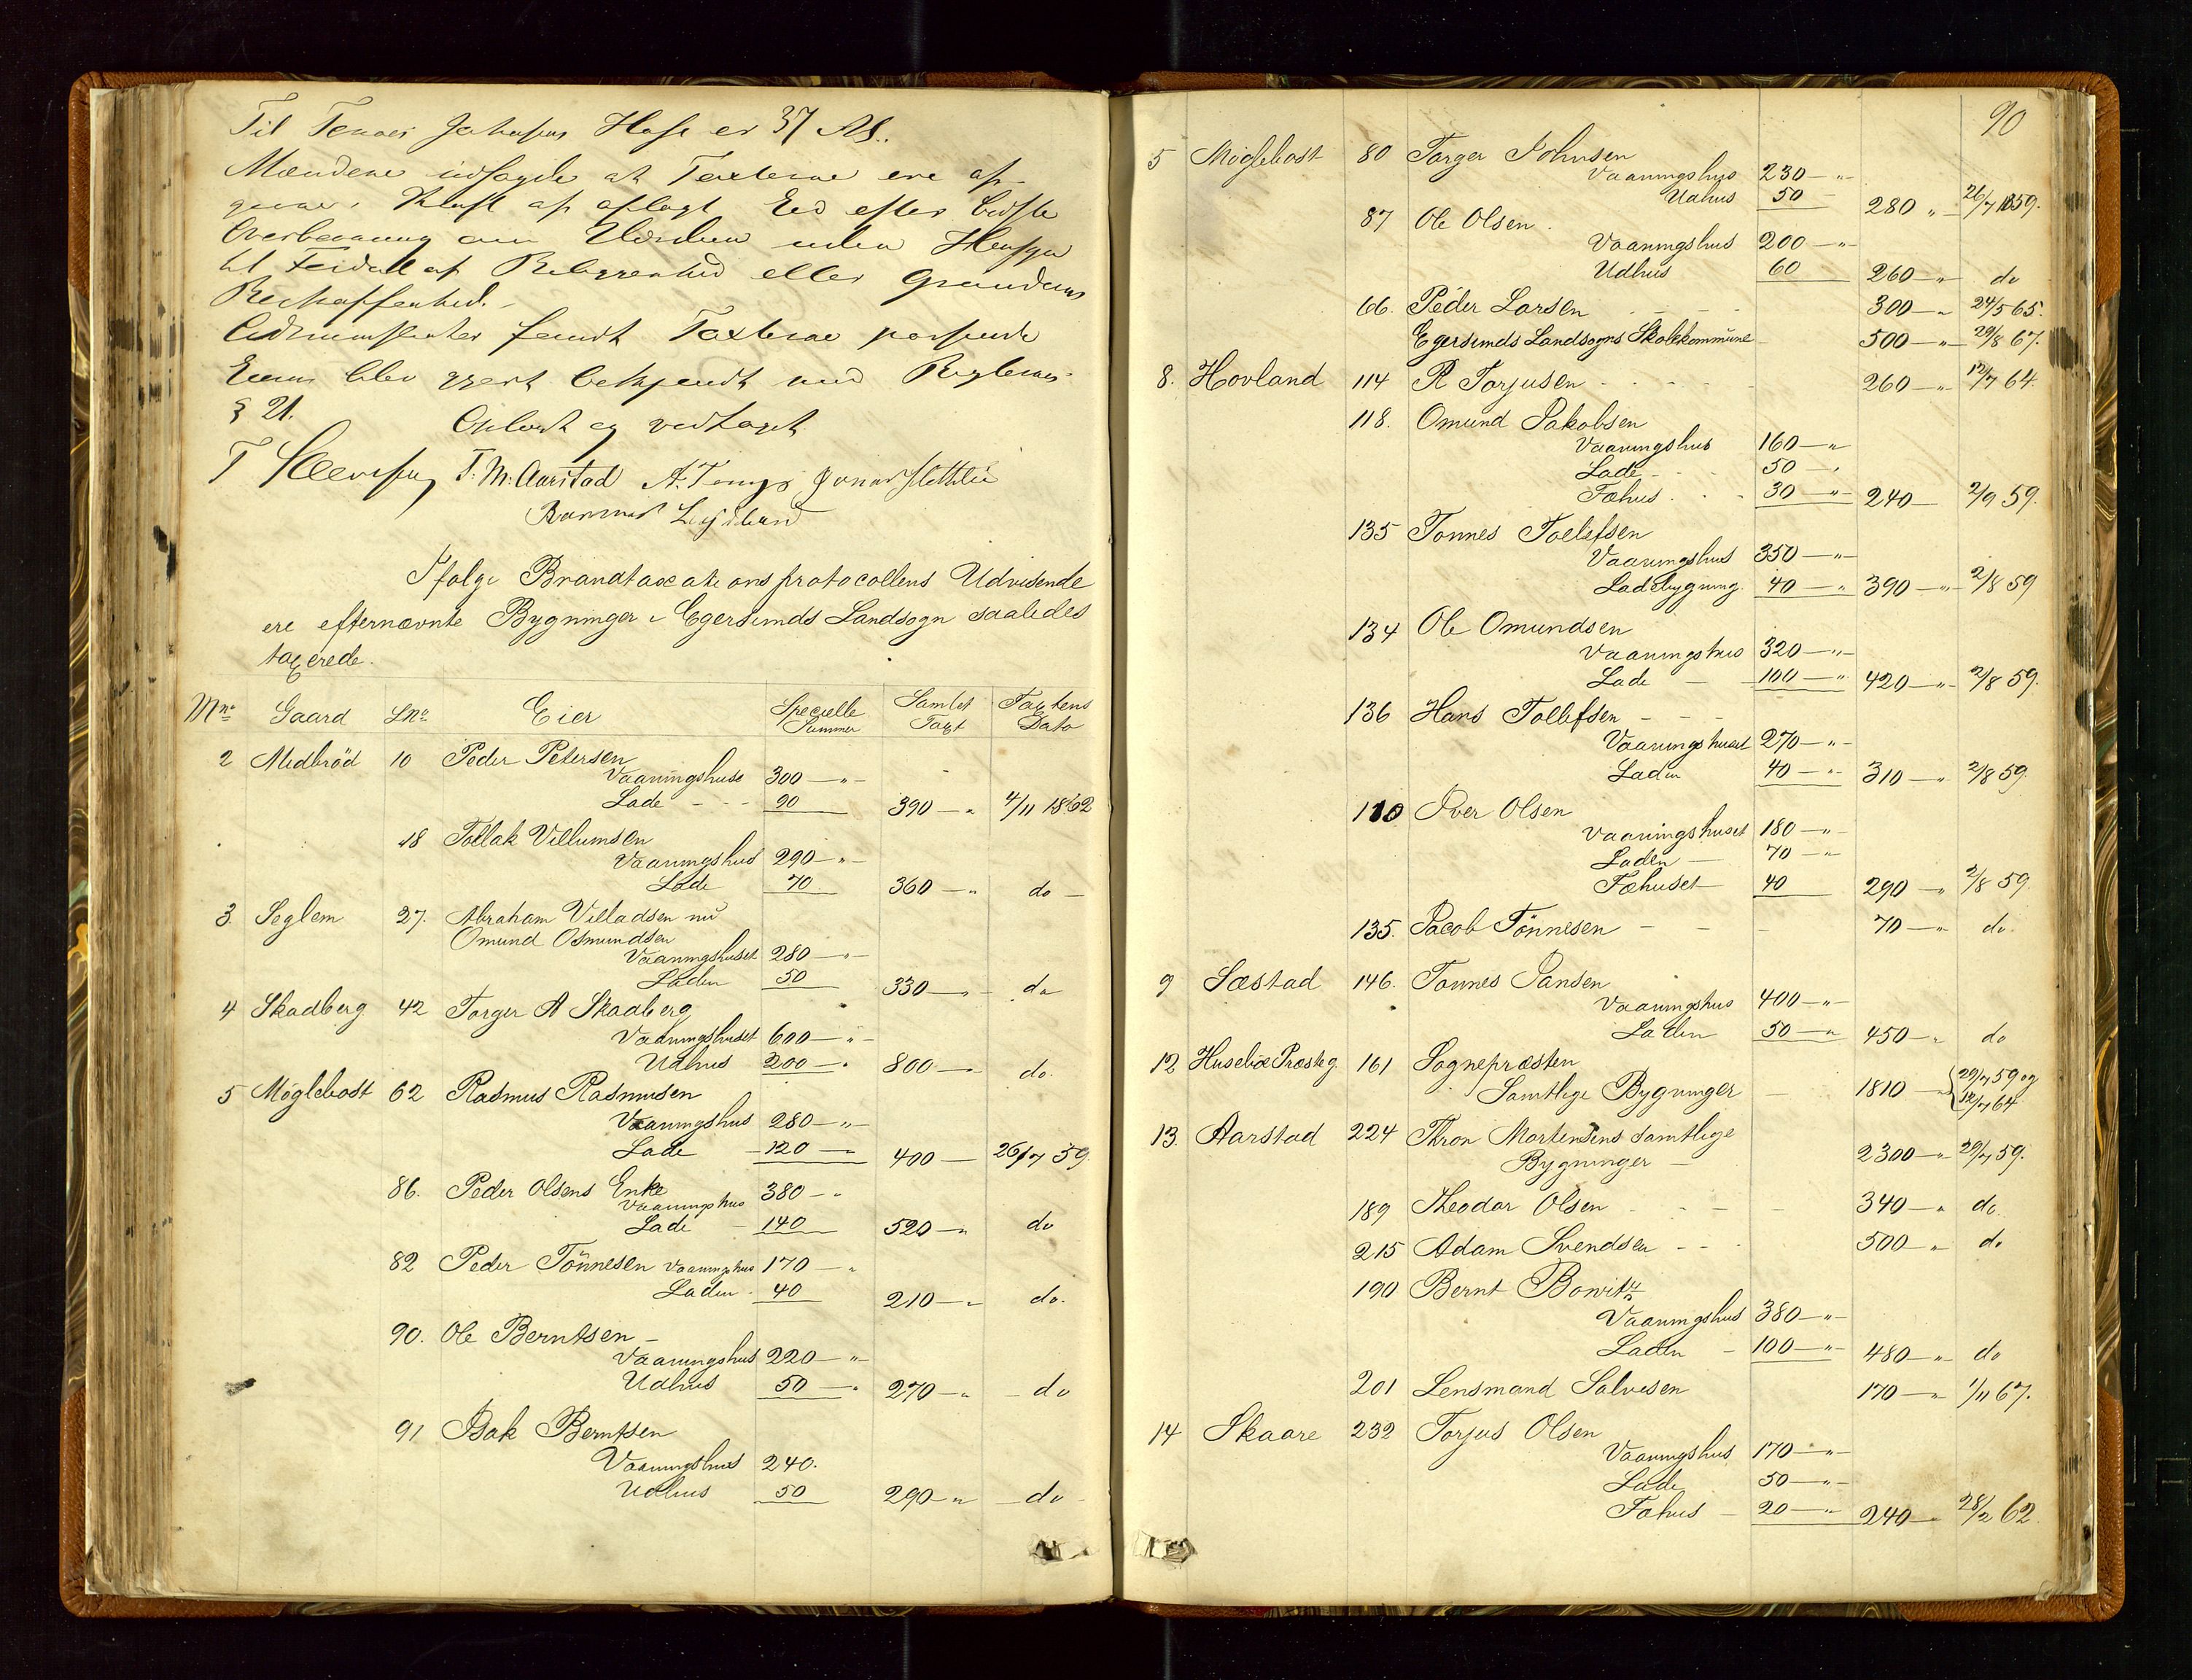 Til Tønnes Hafs er 37 Al.
Mændene udsagde at Taxterne ere af-
givne i Kraft af aflagt Eed efter bedste
Overbeviisning om Værdien uden Hensyn
til af Beliggenhed eller Grundens
Beskaffenhed. -
fandt Taxterne passende
Eierne blev gjort bekjendt med Reglernes
§ 21. Oplæst og vedtaget
T. M. Aarstad
Rasmus
Ifølge Brandtaxationsprotocollens Udvisende
ere efternævnte Bygninger i Egersunds Landsogn saaledes
taxerede.
Mno Gaard Lno Eier Specielle Summer Samlet Taxt Taxtens Dato
2 Midbrød 10 Peder Petersen
Vaaningshuse 300 - "
Lade - - - 90 390 - " 4/11 1862
18 Tollak Villumsen
Vaaningshus 290 - "
Lade 70 360 - " do -
3. Seglem 27. Abraham Villadsen nu
Omund Osmundsen
Vaaningshuset 280 - "
Laden 50 330 - " do
4 Skadberg 42 Torger A Skadberg
Vaaningshuset 600 - "
Udhus 200 - " 800 - " do.
5 Møglebost 62 Rasmus Rasmusen
Vaaningshus 280 - "
Lade - 120 - 400 - 26/7 59.
86. Peder Olsens Enke
Vaaningshus 380 - "
Lade - 140 520 - " do
82 Peder Tönnesen Vaaningshus 170 - "
Laden - 40 210 - " do.
90. Ole Berntsen -
Vaaningshus 220 - "
Udhus 50 - " 270 - " - do
91 Isak Berntsen
Vaaningshus 240.
Udhus 50 290 - " - do -
90
5 Møglebost 80 Torger Johnsen
Vaaningshus 230 - "
Udhus 50 - 280 " - 26/7 1859.
87 Ole Olsen.
Vaaningshus 200 - "
Udhus 60 260 - " do
66. Peder Larsen 300 - " 24/5 65.
Egersunds Landsogns Skolekommune - 500 - " - 29/8 67.
8. Hovland 114 R Torjusen - - - - 260 - " 12/7 64.
118. Omund Jakobsen
Vaaningshus 160 - "
Lade - 50 - "
Fæhus. 30 - " - 240 - 2/9 59.
135 Tonnes Toellefsen
Vaaningshus 350 - "
Ladebygning. 40 - " 390 - " - 2/8 59
134 Ole Omundsen
Vaaningshus 320 - "
Lade - 100 - " 420 - " 2/8 59.
136 Hans Tollefsen - - -
Vaaningshuset 270 - "
Laden 40 - " 310 - " 2/8 59.
110 Iver Olsen
Vaaningshuset 180 - "
Laden - 70 - "
Fæhuset - 40 290 - " 2/8 59
135. Jacob Tönnesen - - - 70 - " do.
9 Sæstad 146. Tonnes Jansen
Vaaningshus 400 - "
Laden 50 - " 450 - " do
12 Husebø Præsteg. 161 Sognepræsten
Samtlige Bygninger - 1810 - " 29/7 59 og
12/7 64
13. Aarstad 224 Thron Mortensens samtlige
Bygninger - 2300 - " 29/7 59.
189 Theodor Olsen - - - 340 - " do.
215 Adam Svendsen - - 500 - " do
190 Bernt Bowitz
Vaaningshus 380 - "
Laden - 100 - " 480 - " do
201 Lensmand Salvesen 170 - " 1/11 67.
14 Skaare 232 Torjus Olsen
Vaaningshus 170 - "
Lade 50 - "
Fæhus - 20 - " 240 - 28/2 62.